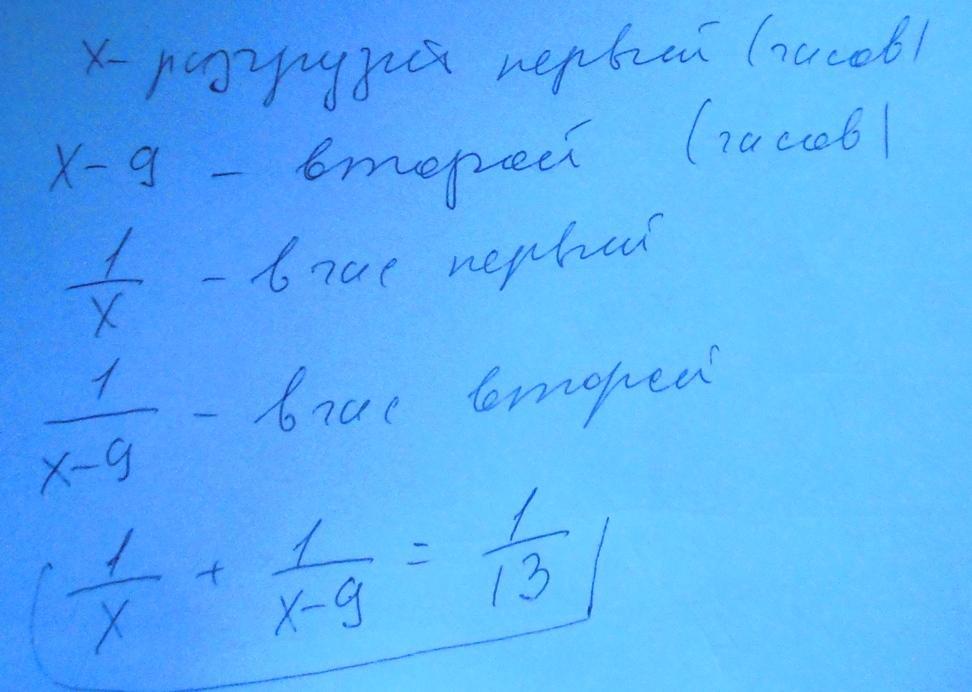 x - разгрузит первый (часов)
x - 9 - второй (часов)
1/x - в час первый
1/(x-9) - в час второй
1/x + 1/(x-9) = 1/13